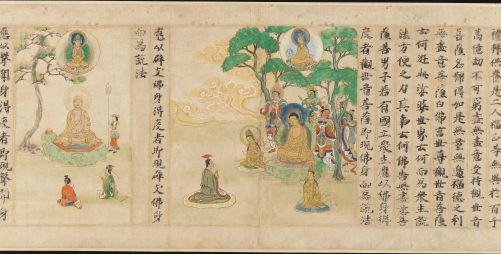 禮拜供養是二人福正等無異於百千
萬億劫不可窮盡無盡意受持觀世音
菩薩名號得如是無量無邊福德之利
無盡意菩薩白佛言世尊觀世音菩薩
云何遊此娑婆世界云何而為眾生說
法方便之力其事云何佛告無盡意菩
薩善男子若有國土眾生應以佛身得
度者觀世音菩薩即現佛身而為說法
應以辟支佛身得度者即現辟支佛身
而為說法
應以聲聞身得度者即現聲聞身